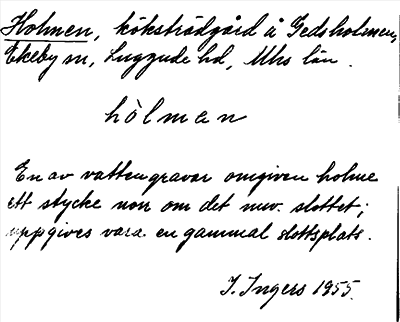 Holmen, köksträdgård å Gedsholmen,
Ekeby sn, Luggude hd, Mhs län.
hòlmen
En av vattengravar omgiven holme
ett stycke norr om det nuv. slottet;
uppgives vara en gammal slottsplats.
I. Ingers 1955.